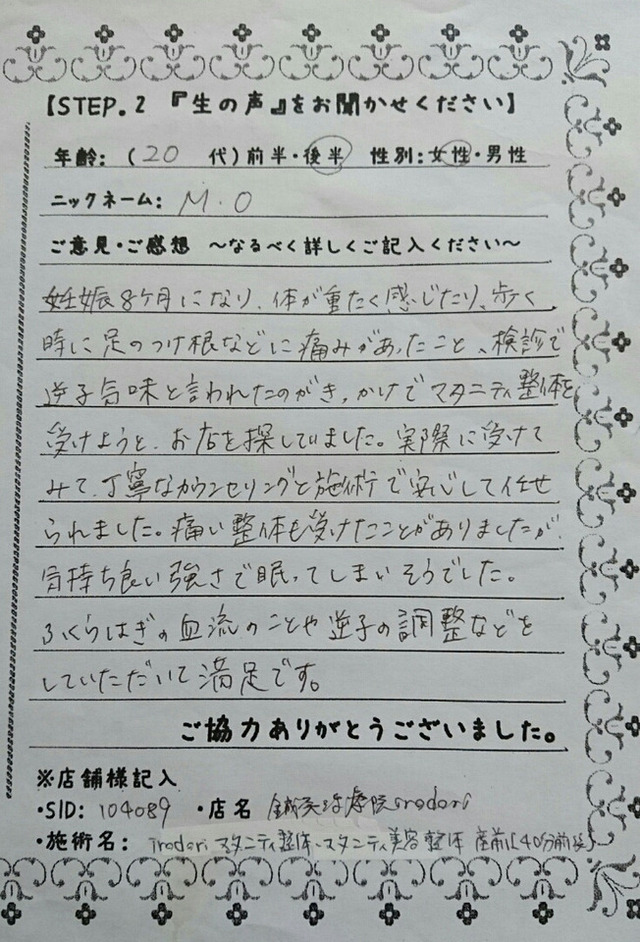 【STEP.2 『生の声』をお聞かせください】
年齢:(20 代)前半・後半 性別:女性・男性
ニックネーム: M.O
ご意見・ご感想 ～なるべく詳しくご記入ください～
妊娠8ケ月になり、体が重たく感じたり、歩く
時に足のつけ根などに痛みがあったこと、検診で
逆子気味と言われたのがきっかけでマタニティ整体を
受けようと、お店を探していました。実際に受けて
みて、丁寧なカウンセリングと施術で安心して任せ
られました。痛い整体も受けたことがありましたが
気持ち良い強さで眠ってしまいそうでした。
ふくらはぎの血流のことや逆子の調整などを
していただいて満足です。
ご協力ありがとうございました。
※店舗様記入
・SID: 104089 ・店名 鍼灸治療院irodori
・施術名: irodori マタニティ整体・マタニティ美容整体 産前(40分前後)